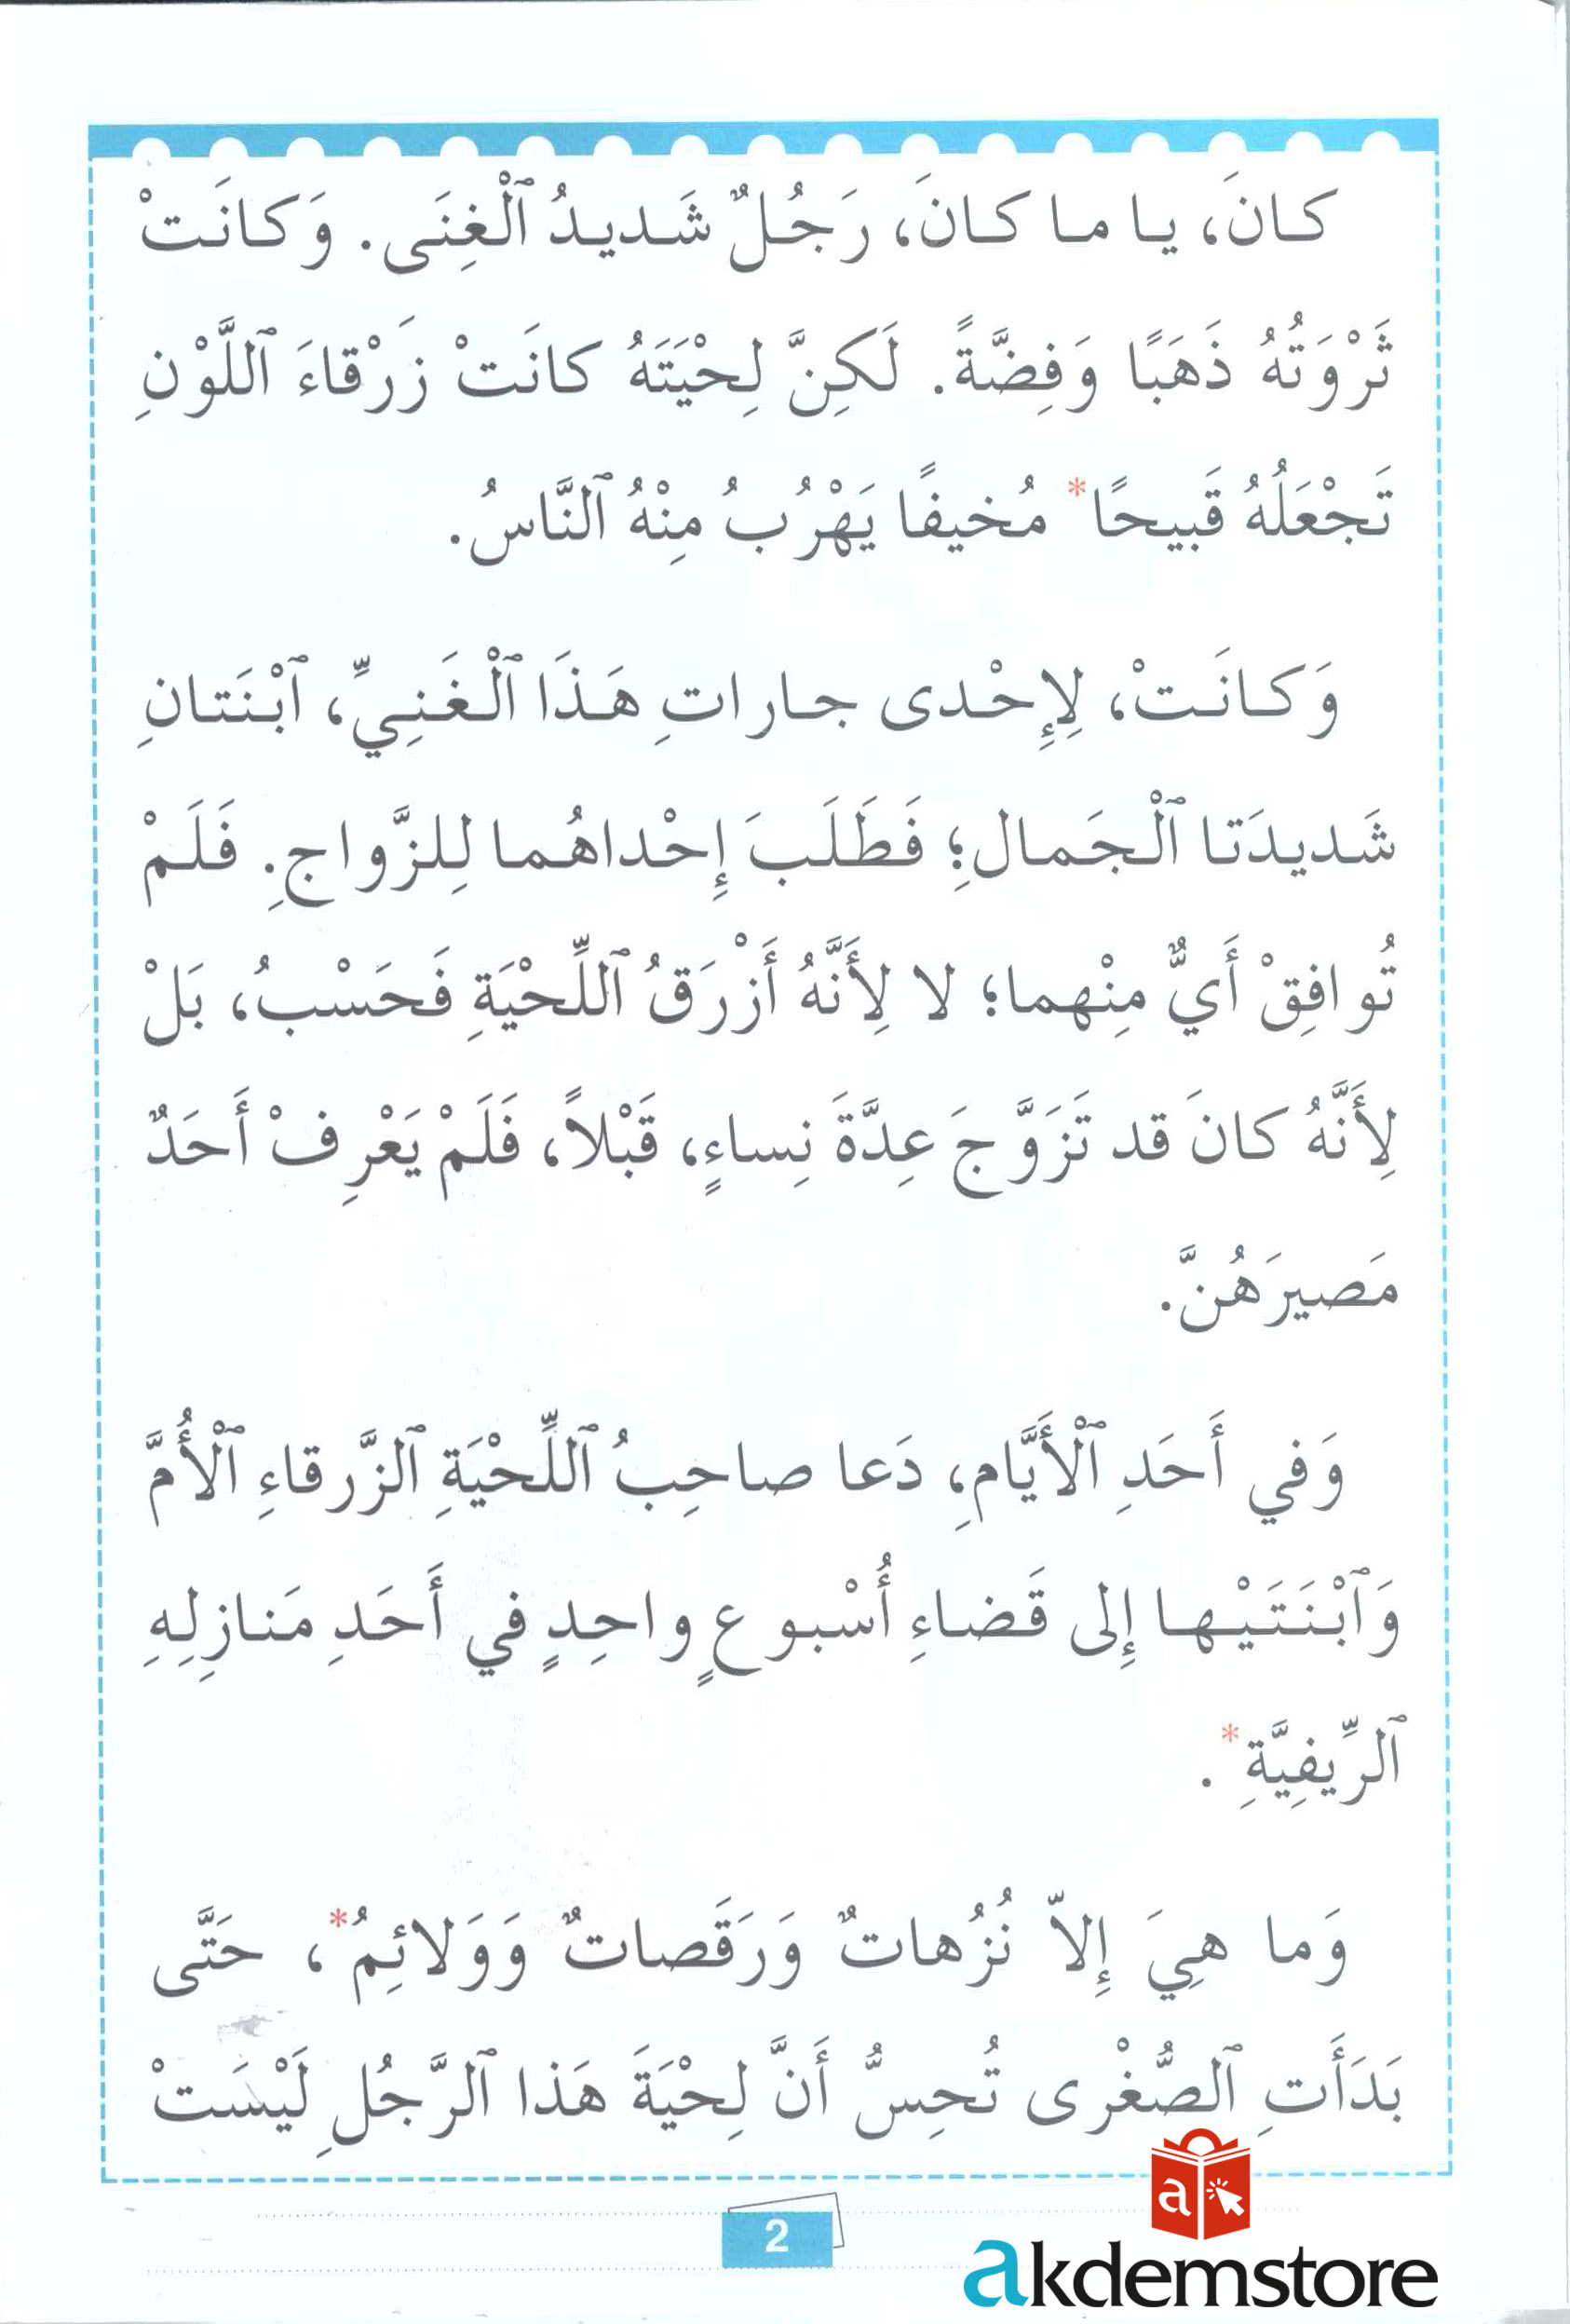 كانَ، يا ما كانَ، رَجُلٌ شَديدُ ٱلْغِنَى. وَكانَتْ
ثَرْوَتُهُ ذَهَبًا وَفِضَّةً. لَكِنَّ لِحْيَتَهُ كانَتْ زَرْقاءَ ٱللَّوْنِ
تَجْعَلُهُ قَبيحًا* مُخيفًا يَهْرُبُ مِنْهُ ٱلنَّاسُ.
وَكانَتْ، لِإِحْدى جاراتِ هَذَا ٱلْغَنِيِّ، ٱبْنَتانِ
شَديدَتا ٱلْجَمالِ؛ فَطَلَبَ إِحْداهُما لِلزَّواجِ. فَلَمْ
تُوافِقْ أَيٌّ مِنْهما؛ لا لِأَنَّهُ أَزْرَقُ ٱللِّحْيَةِ فَحَسْبُ، بَلْ
لِأَنَّهُ كانَ قد تَزَوَّجَ عِدَّةَ نِساءٍ، قَبْلاً، فَلَمْ يَعْرِفْ أَحَدٌ
مَصيرَهُنَّ.
وَفي أَحَدِ ٱلْأَيَّامِ، دَعا صاحِبُ ٱللِّحْيَةِ ٱلزَّرقاءِ ٱلْأُمَّ
وَٱبْنَتَيْها إِلى قَضاءِ أُسْبوعٍ واحِدٍ في أَحَدِ مَنازِلِهِ
ٱلرِّيفِيَّةِ* .
وَما هِيَ إِلاّ نُزُهاتٌ وَرَقَصاتٌ وَوَلائِمُ*، حَتَّى
بَدَأَتِ ٱلصُّغْرى تُحِسُّ أَنَّ لِحْيَةَ هَذا ٱلرَّجُلِ لَيْسَتْ
2
a
akdemstore